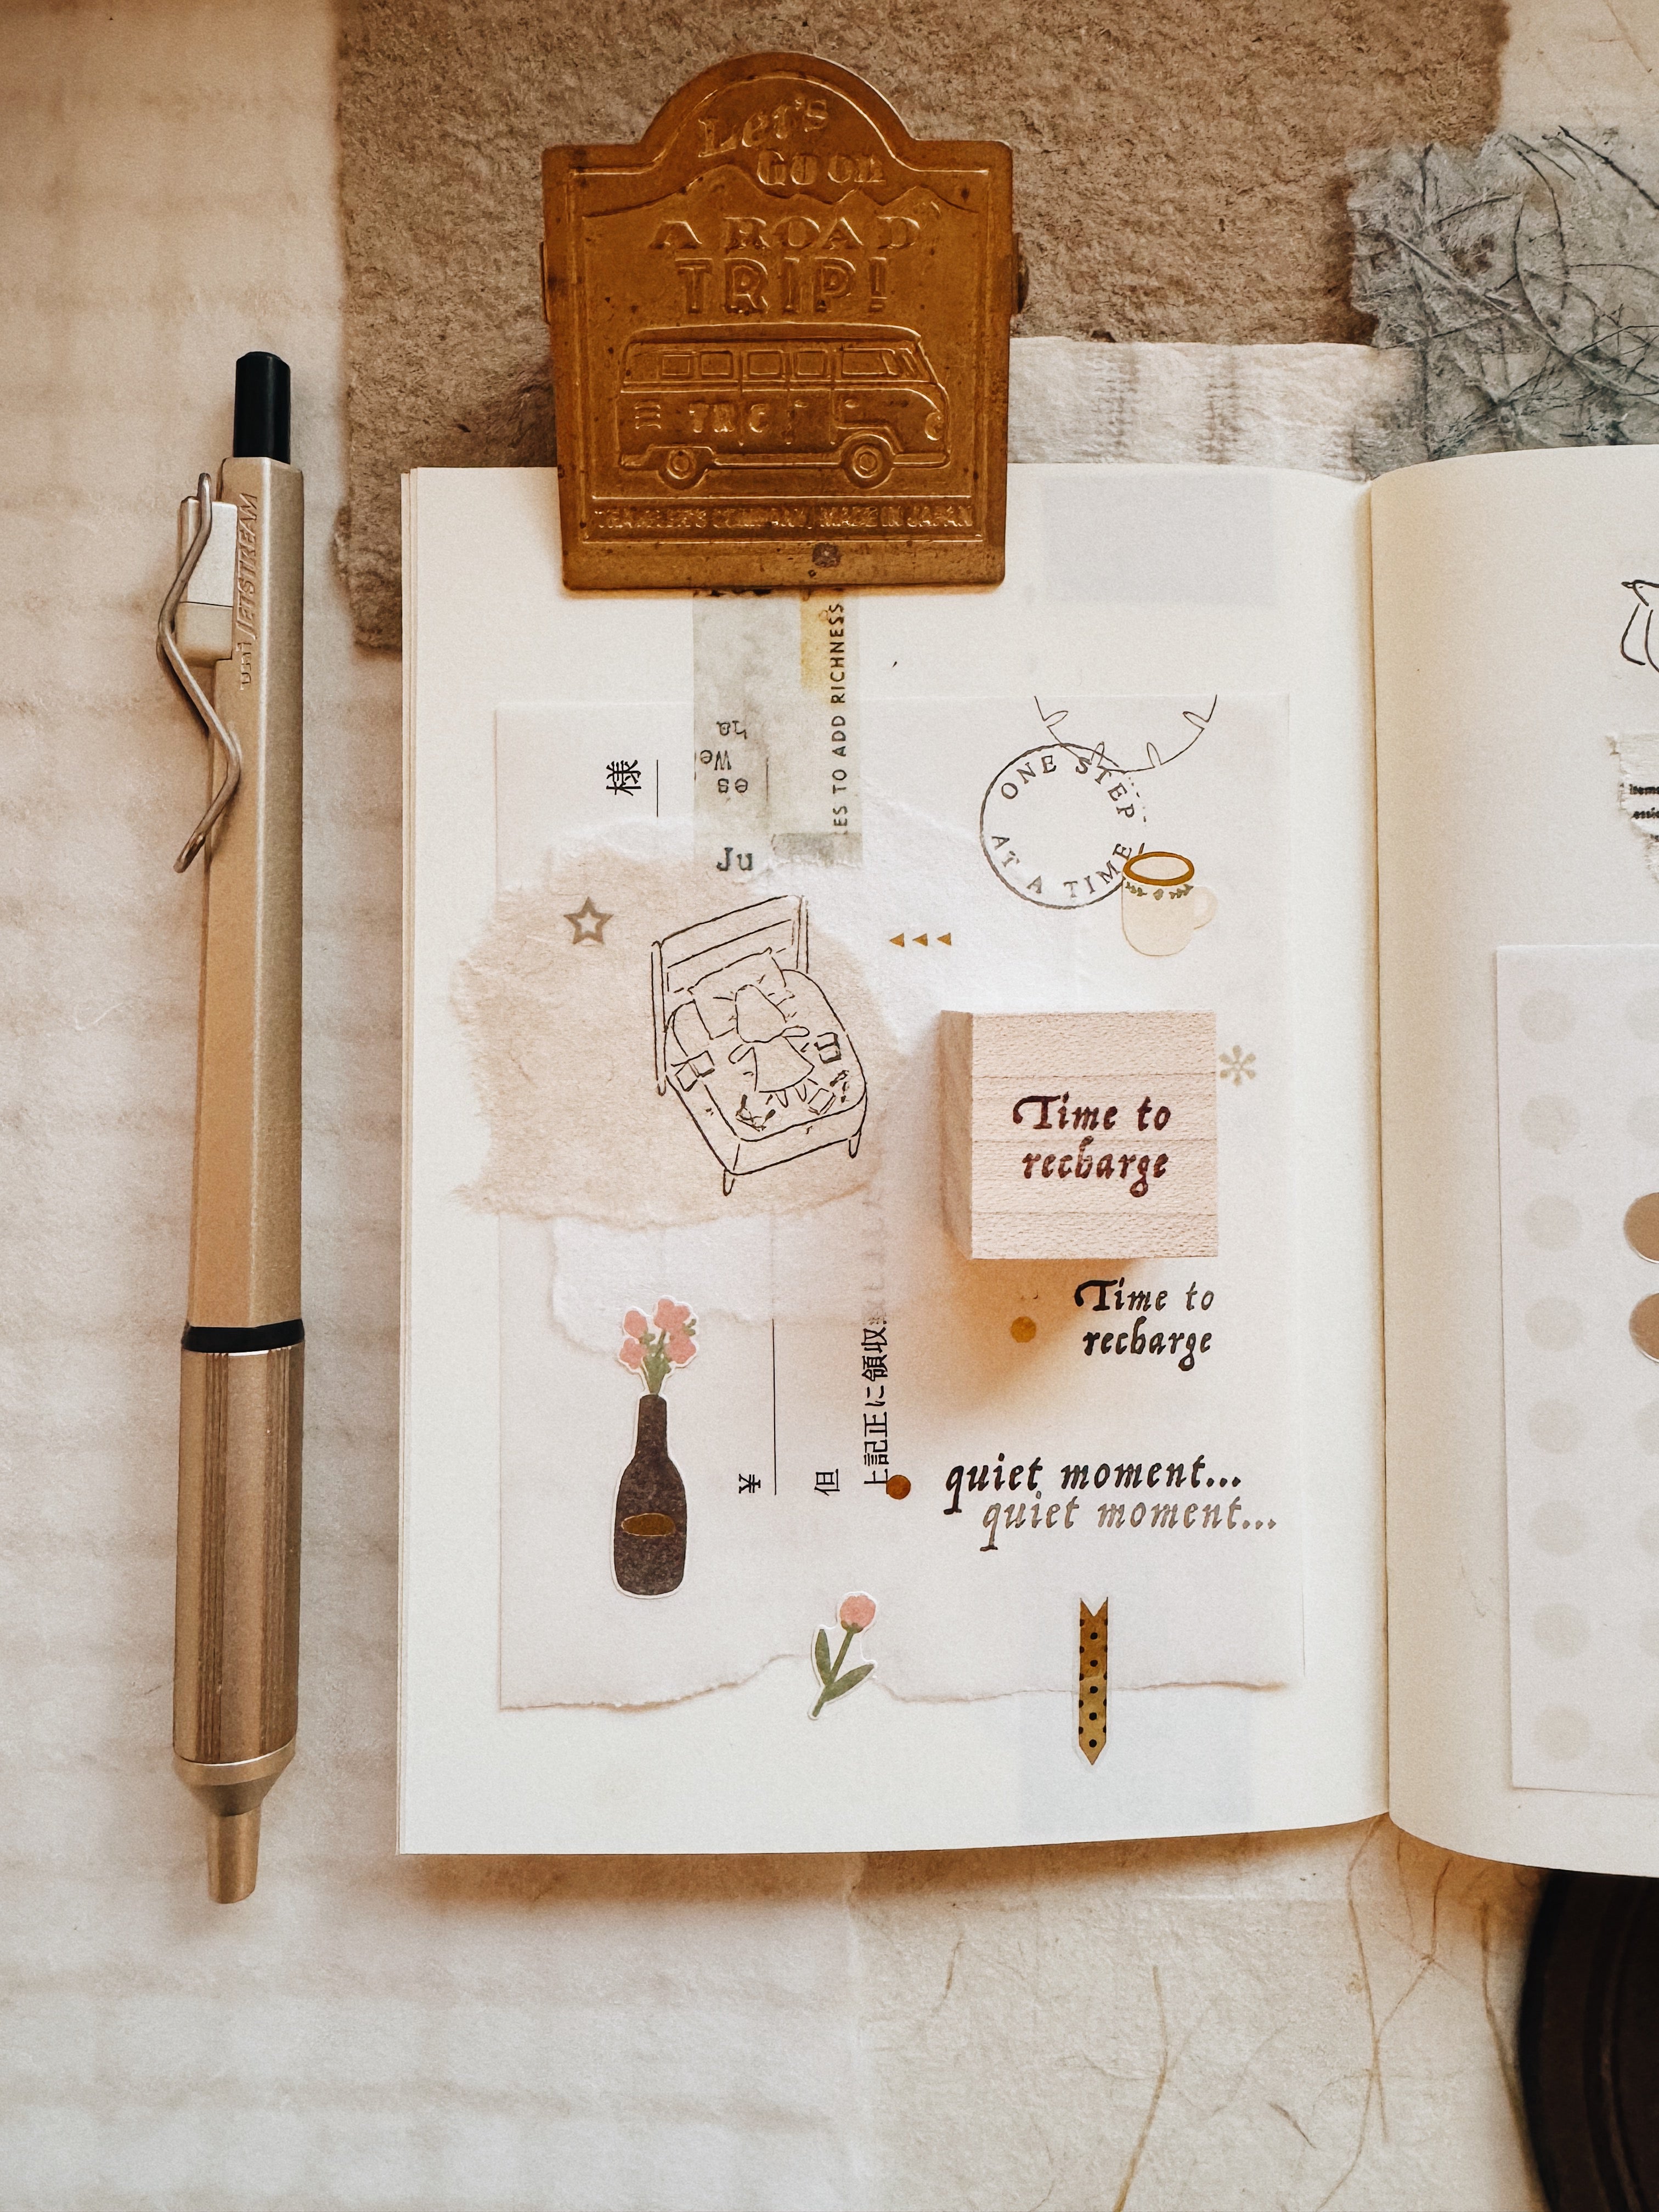 Let's
Go on
A ROAD
TRIP!
TRC
TRAVELER'S COMPANY / MADE IN JAPAN
uni JETSTREAM
ES TO ADD RICHNESS
ha
We
es
Ju
様
ONE STEP
AT A TIME
Time to
recharge
Time to
recharge
¥
但
上記正に領収
quiet moment...
quiet moment...